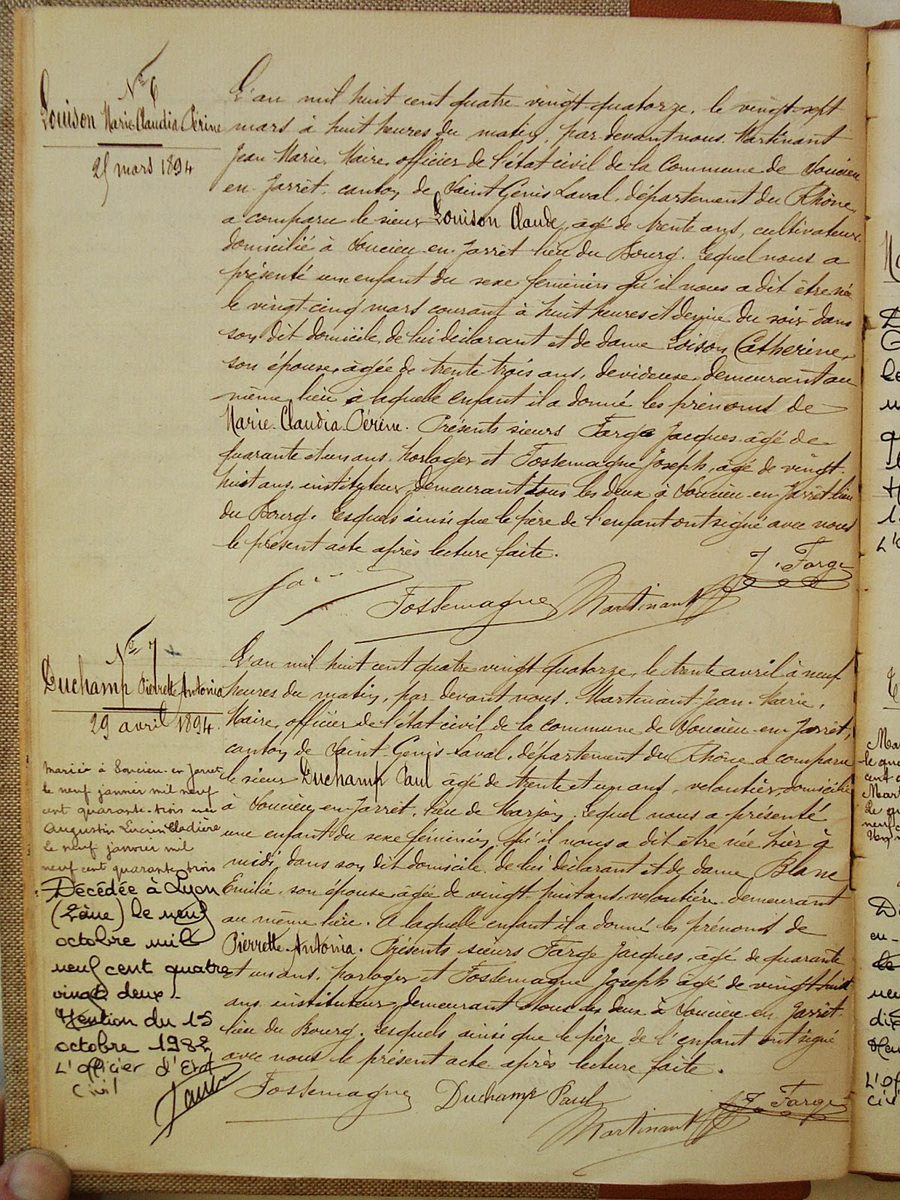 N° 6
Louison Marie Claudia Périne
25 mars 1894
L'an mil huit cent quatre vingt quatorze, le vingt-sept
mars à huit heures du matin, par devant nous Martinant
Jean Marie, Maire, officier de l'état civil de la Commune de Soucieu
en Jarrêt, canton de Saint Genis Laval, département du Rhône,
a comparu le sieur Louison Claude, âgé de trente ans, cultivateur
domicilié à Soucieu en Jarrêt lieu du Bourg. Lequel nous a
présenté un enfant du sexe féminin qu'il nous a dit être née
le vingt cinq mars courant à huit heures et demie du soir dans
son dit domicile, de lui déclarant et de dame Loison Catherine,
son épouse, âgée de trente trois ans, dévideuse, demeurant au
même lieu à laquelle enfant il a donné les prénoms de
Marie Claudia Périne. Présents sieurs Farge Jacques, âgé de
quarante et un ans, horloger et Fossemagne Joseph, âgé de vingt
huit ans, instituteur, demeurant tous les deux à Soucieu en Jarrêt lieu
du Bourg. Lesquels ainsi que le père de l'enfant ont signé avec nous
le présent acte après lecture faite.
J. Farge
Fossemagne Martinant
N° 7
Duchamp Pierrette Antonia
29 avril 1894
L'an mil huit cent quatre vingt quatorze, le trente avril à neuf
heures du matin, par devant nous Martinant Jean Marie,
Maire, officier de l'état civil de la commune de Soucieu en Jarrêt,
canton de Saint Genis Laval, département du Rhône a comparu
le sieur Duchamp Paul âgé de trente et un ans, veloutier, domicilié
à Soucieu en Jarrêt, lieu de Marjon, lequel nous a présenté
une enfant du sexe féminin, qu'il nous a dit être née hier à
midi, dans son dit domicile de lui déclarant et de dame Blanc
Emilie, son épouse âgée de vingt huit ans, veloutière demeurant
au même lieu. A laquelle enfant il a donné les prénoms de
Pierrette Antonia. Présents sieurs Farge Jacques, âgé de quarante
et un ans, horloger et Fossemagne Joseph âgé de vingt huit
ans, instituteur, demeurant tous les deux à Soucieu en Jarrêt
lieu du Bourg. Lesquels ainsi que le père de l'enfant ont signé
avec nous le présent acte après lecture faite.
Mariée à Soucieu en Jarret
le neuf janvier mil neuf
cent quarante trois avec
Augustin Lucien
Le neuf janvier mil
neuf cent quarante trois
Décédée à Lyon
(2ème) le neuf
octobre mil
neuf cent quatre
vingt deux -
Mention du 15
octobre 1982
L'officier d'Etat
Civil
Fossemagne Duchamp Paul J. Farge
Martinant